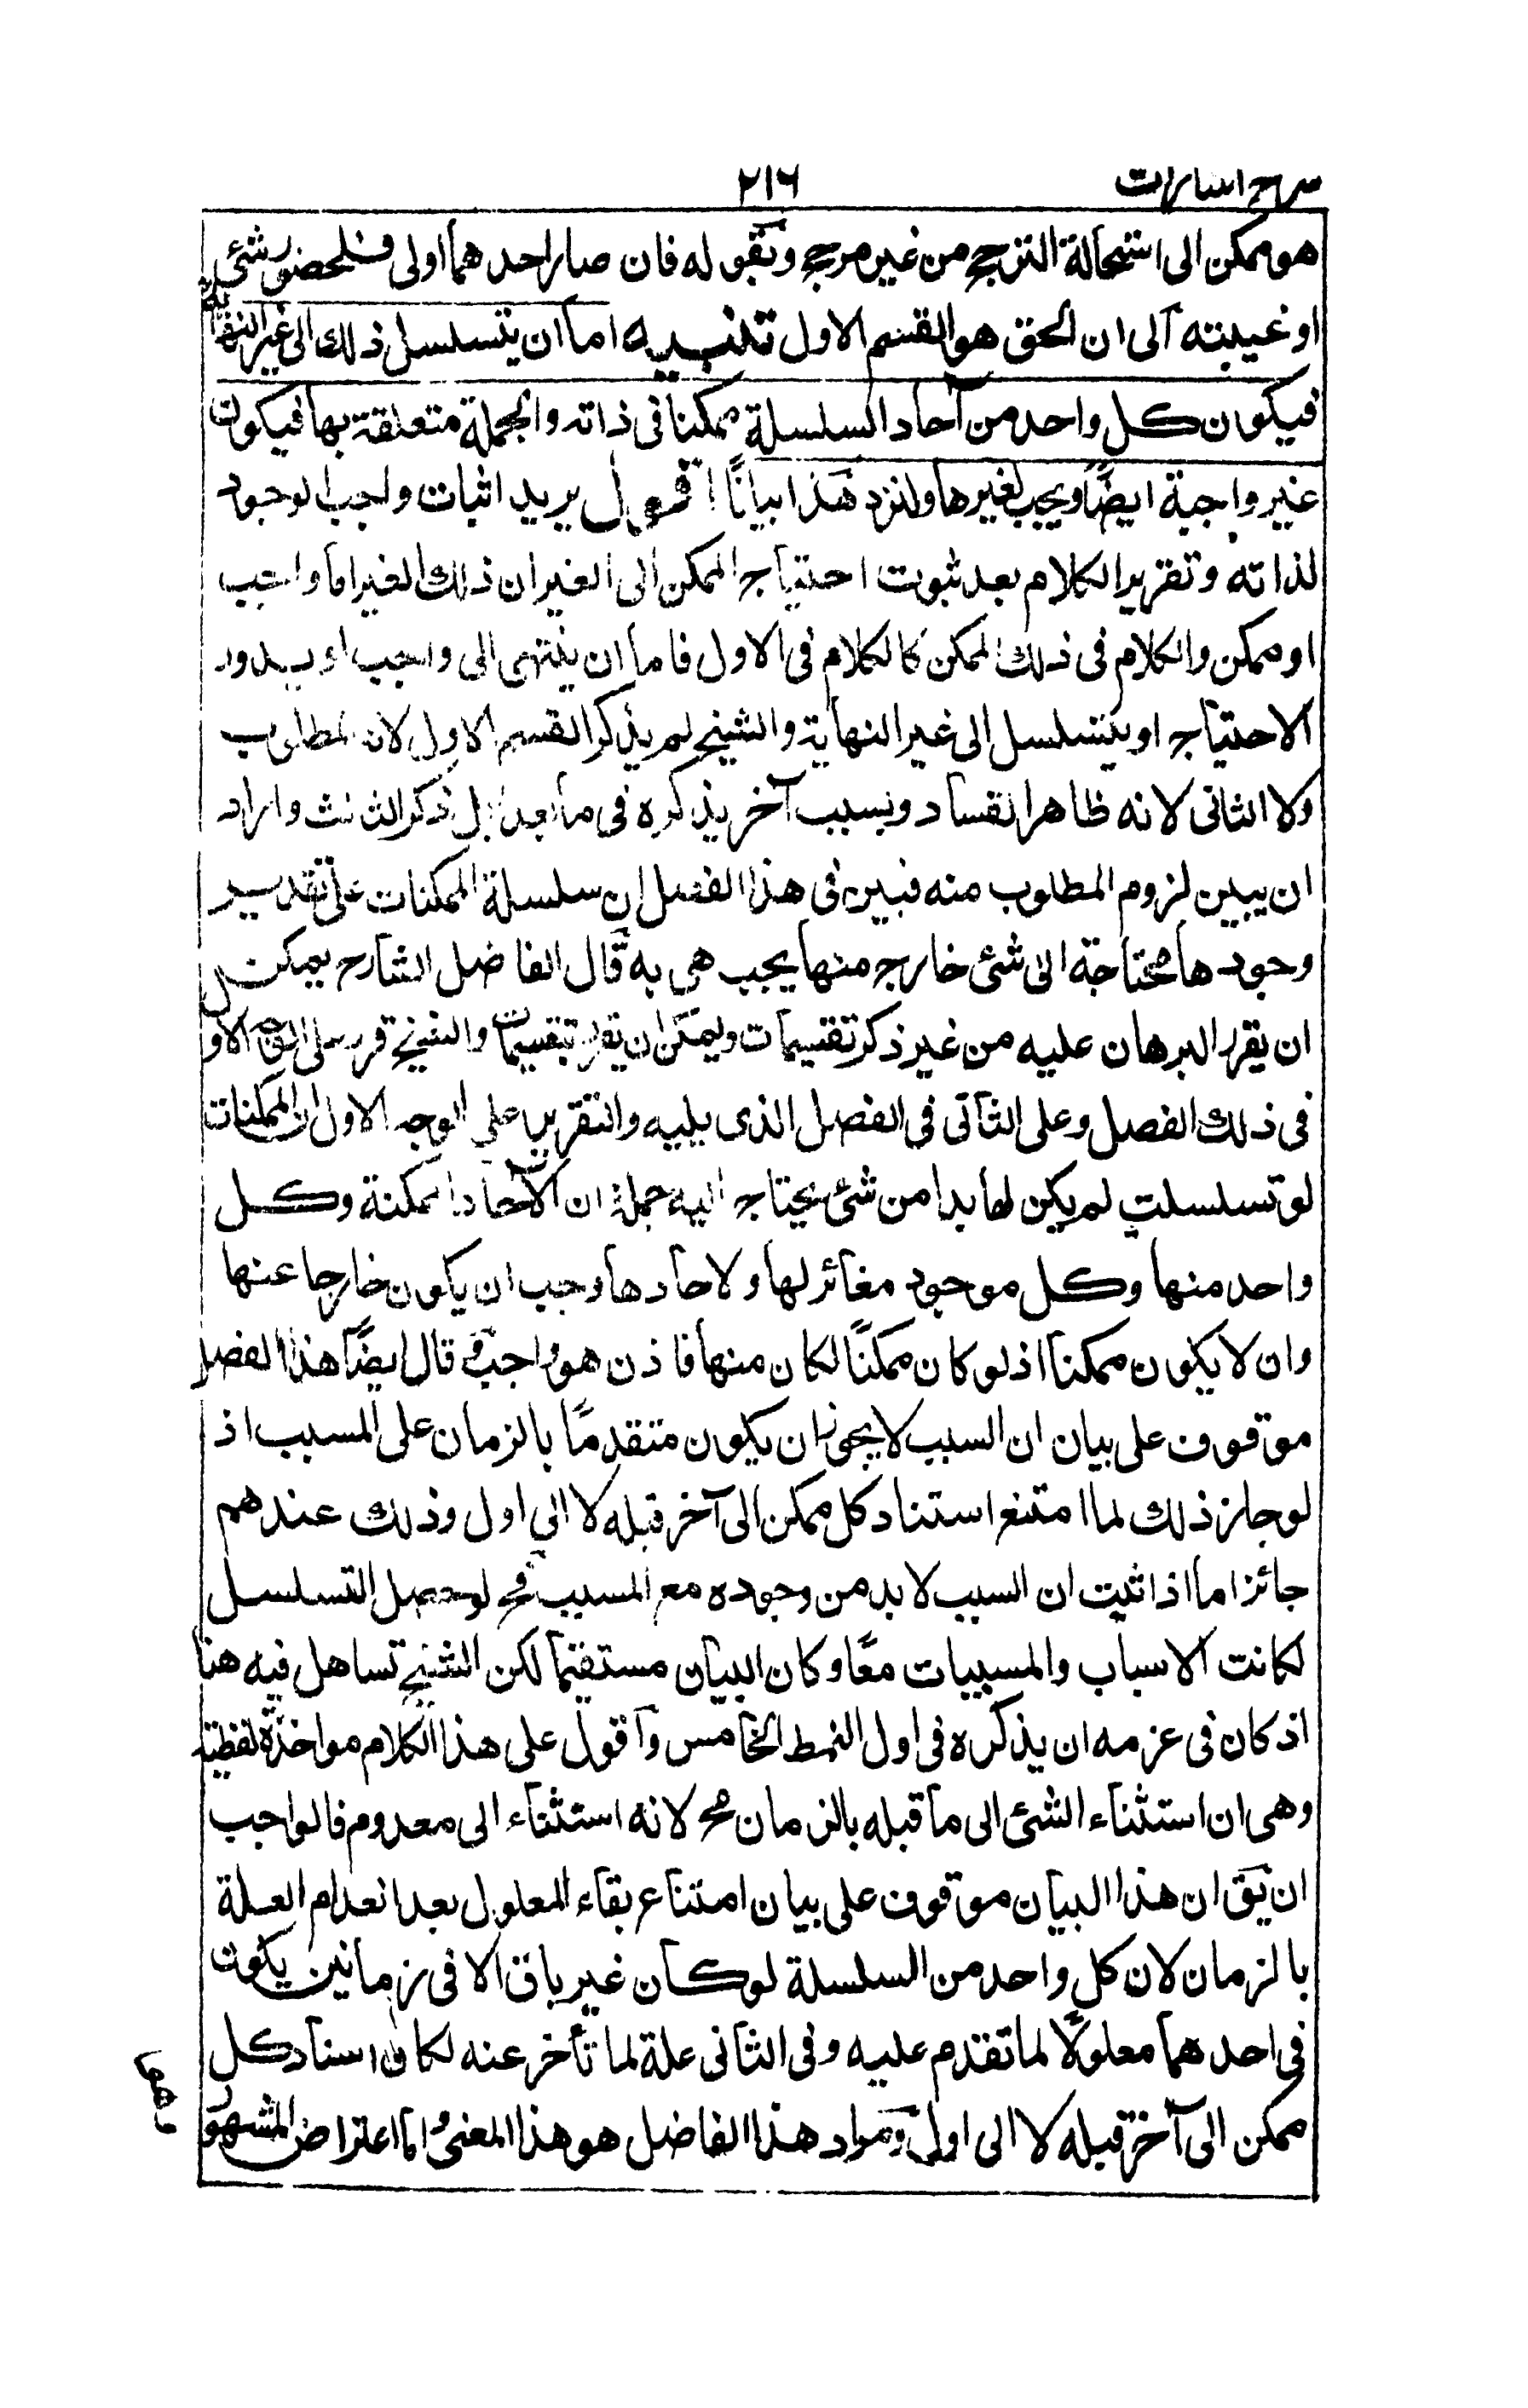 شرح اشارات ٢١٦
هو ممكن الى استحالة الترجح من غير مرجح وبقوله فان صار احدهما اولى فلحضور شئ
او غيبته الى ان الحق هو القسم الاول تنبيه اما ان يتسلسل ذلك الى غير النهاية
فيكون كل واحد من آحاد السلسلة ممكنا فى ذاته والجملة متعلقة بها فيكون
غير واجبة ايضًا ويجب بغيرها ولنزد هذا بيانًا اقول يريد اثبات واجب الوجود
لذاته وتقرير الكلام بعد ثبوت احتياج الممكن الى الغير ان ذلك الغير اما واجب
او ممكن والكلام فى ذلك الممكن كالكلام فى الاول فاما ان ينتهى الى واجب او يدور
الاحتياج او يتسلسل الى غير النهاية والشيخ لم يذكر القسم الاول لانه المطلوب
ولا الثانى لانه ظاهر الفساد وبسبب آخر يذكره فى ما بعد بل ذكر الثالث واراد
ان يبين لزوم المطلوب منه فبين فى هذا الفصل ان سلسلة الممكنات على تقدير
وجودها محتاجة الى شئ خارج منها يجب هى به قال الفاضل الشارح يمكن
ان يقرر البرهان عليه من غير ذكر تقسيمات ويمكن ان يقرر بتقسيمات والشيخ قرر على الوجه الاول
فى ذلك الفصل وعلى الثانى فى الفصل الذى يليه والتقرير على الوجه الاول ان الممكنات
لو تسلسلت لم يكن لها بدا من شئ يحتاج اليه جملة ان الآحاد الممكنة وكل
واحد منها وكل موجود مغائر لها ولاحادها وجب ان يكون خارجا عنها
وان لا يكون ممكنا اذ لو كان ممكنًا لكان منها فاذن هو واجب وقال ايضًا هذا الفصل
موقوف على بيان ان السبب لا يجوز ان يكون متقدمًا بالزمان على المسبب اذ
لو جاز ذلك لما امتنع استناد كل ممكن الى آخر قبله لا الى اول وذلك عندهم
جائز اما اذا ثبت ان السبب لا بد من وجوده مع المسبب فح لو حصل التسلسل
لكانت الاسباب والمسببات معًا وكان البيان مستقيما لكن الشيخ تساهل فيه هنا
اذ كان فى عزمه ان يذكره فى اول النمط الخامس وآقول على هذا الكلام مواخذة لفظية
وهى ان استثناء الشئ الى ما قبله بالزمان مح لانه استثناء الى معدوم فالواجب
ان يق ان هذا البيان موقوف على بيان امتناع بقاء المعلول بعد انعدام العلة
بالزمان لان كل واحد من السلسلة لو كان غير باق الا فى زمانين يكون
فى احدهما معلولًا لما تقدم عليه وفى الثانى علة لما تأخر عنه لكان اسناد كل
ممكن الى آخر قبله لا الى اول ومراد هذا الفاضل هو هذا المعنى واما اعتراض المشهور